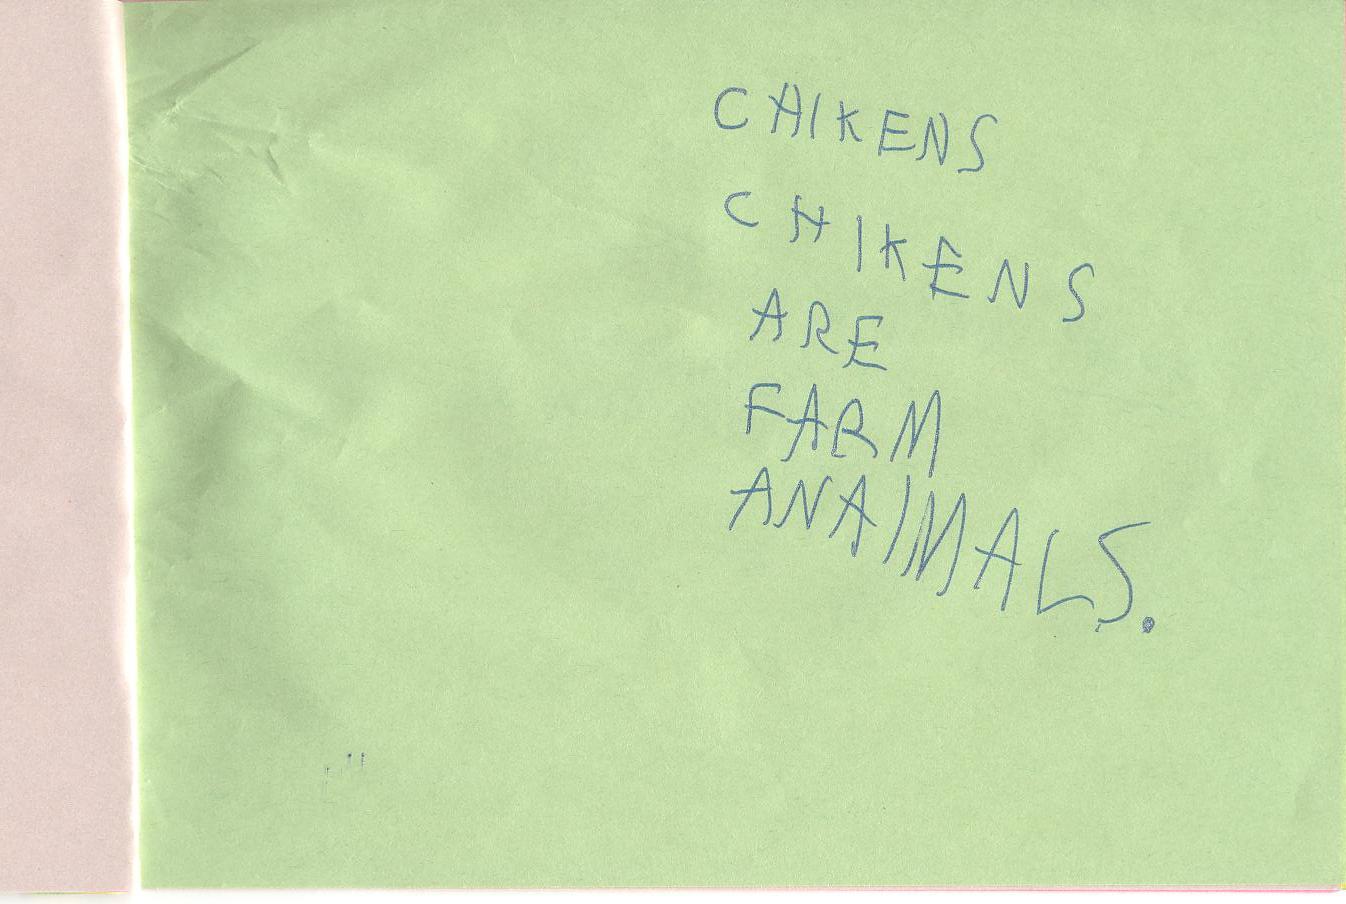 CHIKENS
CHIKENS
ARE
FARM
ANAIMALS.